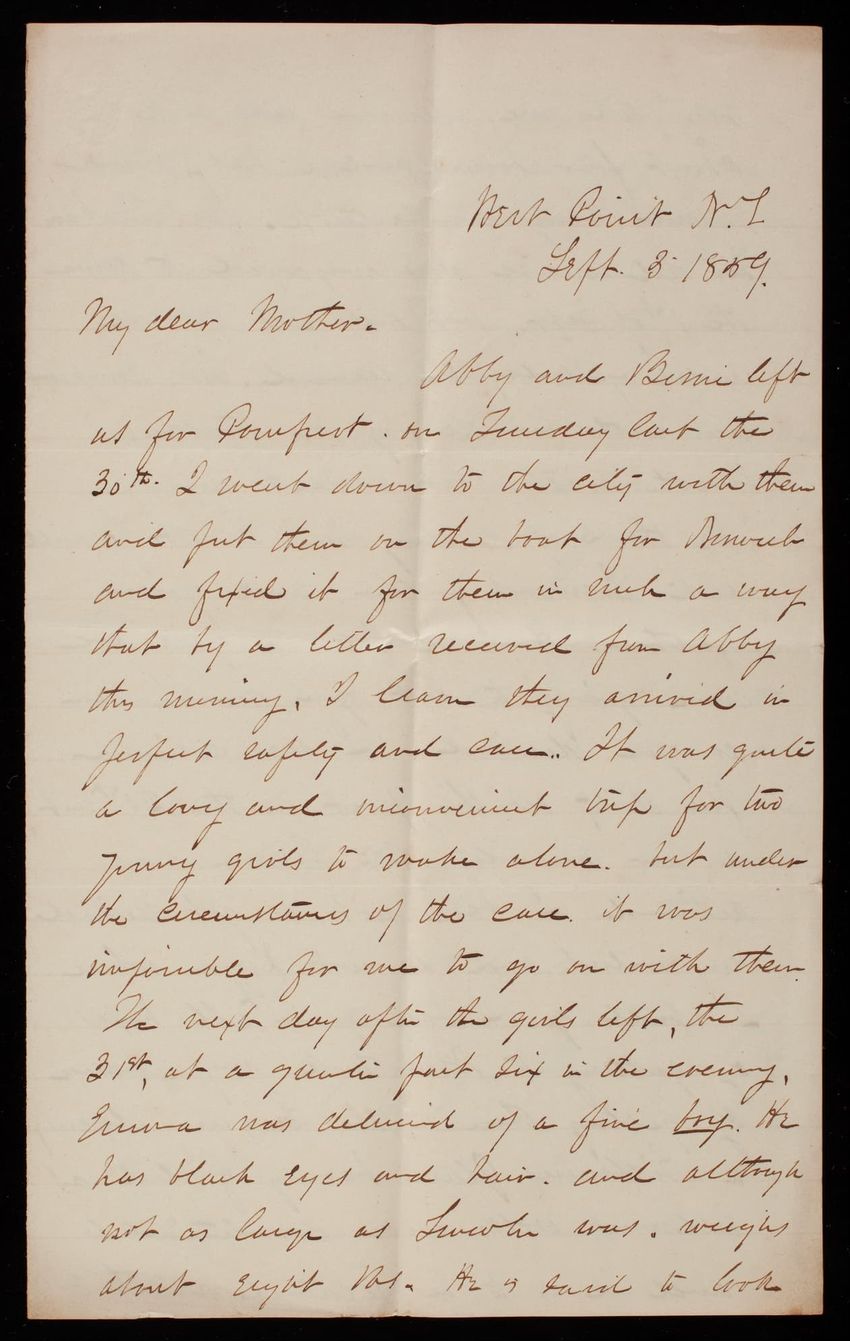 West Point N.Y.
Sept. 3 1859.
My dear Mother.
Abby and Bessie left
us for Pomfret. on Tuesday last the
30th. I went down to the city with them
and put them on the boat for Norwich
and fixed it for them in such a way
that by a letter received from Abby
this morning, I learn they arrived in
perfect safety and ease. It was quite
a long and inconvenient trip for two
young girls to make alone. but under
the circumstances of the case. it was
impossible for me to go on with them.
The next day after the girls left, the
31st, at a quarter past six in the evening,
Emma was delivered of a fine boy. He
has black eyes and hair. and although
not as large as Lincoln was. weighs
about eight lbs. He is said to look